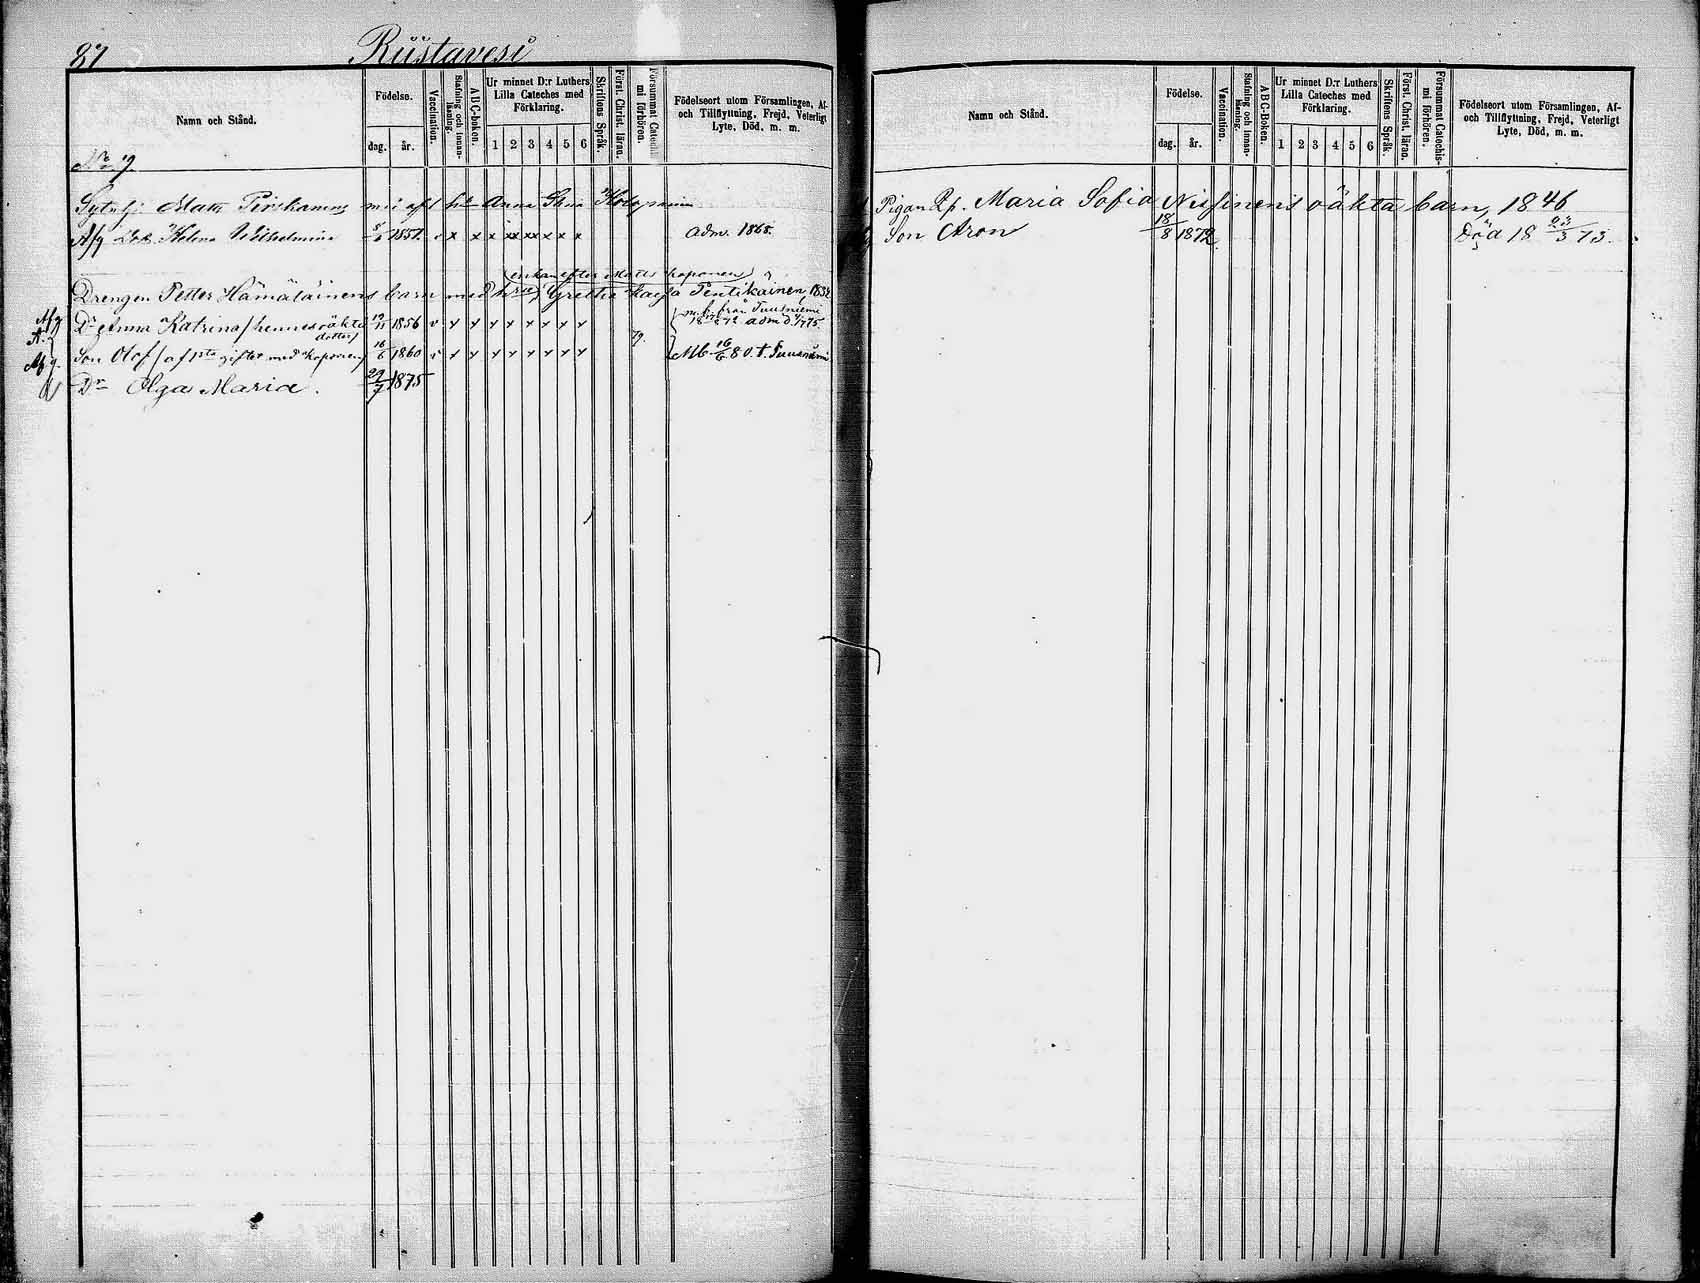 87 Riistavesi
Namn och Stånd.
Födelse.
dag. år.
Vaccination.
Stafning och innanläsning.
A B C-boken.
Ur minnet D:r Luthers Lilla Cateches med Förklaring.
1 2 3 4 5 6
Skriftens Språk.
Först. Christ. läran.
Försummat Catechismi förhören.
Födelseort utom Församlingen, Af- och Tillflyttning, Frejd, Veterligt Lyte, Död, m. m.
No 7.
Matts Pirskanens med afl. h:u Anna Stina
Helena Wilhelmina 1851 v x x x xx xx x x x adm. 1868.
(enkan efter Matts Kaponen)
Drengen Petter Hämäläinens barn med hru, Gretha Kajsa Pentikäinen, 1832
Dr Anna Katrina (hennes oäkta dotter) 1856 v x x x x x x x x från Tuusniemi adm.
Son Olof (af 1sta giftet med Kaponen) 16/6 1860 v x x x x x x x x 79. Mb 16/6 80 t. Tuusniemi
Dr Olga Maria. 29/7 1875
Namn och Stånd.
Födelse.
dag. år.
Vaccination.
Stafning och innanläsning.
A B C-Boken.
Ur minnet D:r Luthers Lilla Cateches med Förklaring.
1 2 3 4 5 6
Skriftens Språk.
Först. Christ. läran.
Försummat Catechismi förhören.
Födelseort utom Församlingen, Af- och Tillflyttning, Frejd, Veterligt Lyte, Död, m. m.
Pigan Maria Sofia Nissinens oäkta barn, 1846
Son Aron 18/8 1872 Död 18 23/3 73.